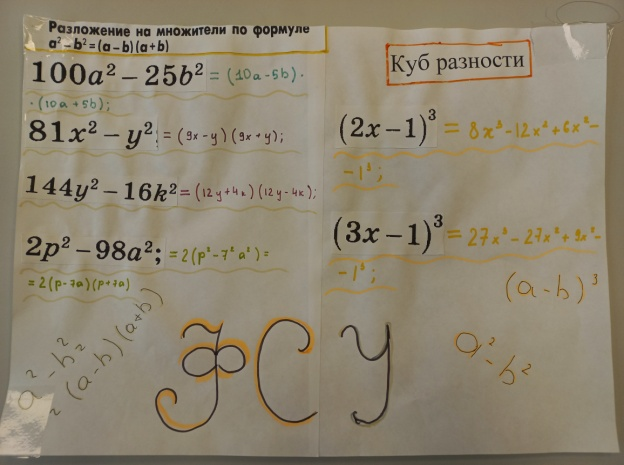 Разложение на множители по формуле
a² – b² = (a – b) (a + b)
100a² – 25b² = (10a - 5b) ·
· (10a + 5b);
81x² – y²; = (9x - y) (9x + y);
144y² – 16k² = (12y + 4k) (12y - 4k);
2p² – 98a²; = 2(p² - 7²a²) =
= 2(p - 7a)(p + 7a)
a² - b²
(a - b) (a + b)
Куб разности
(2x – 1)³ = 8x³ - 12x² + 6x² -
- 1³;
(3x – 1)³ = 27x³ - 27x² + 9x² -
- 1³;
(a - b)³
a² - b²
ФСУ